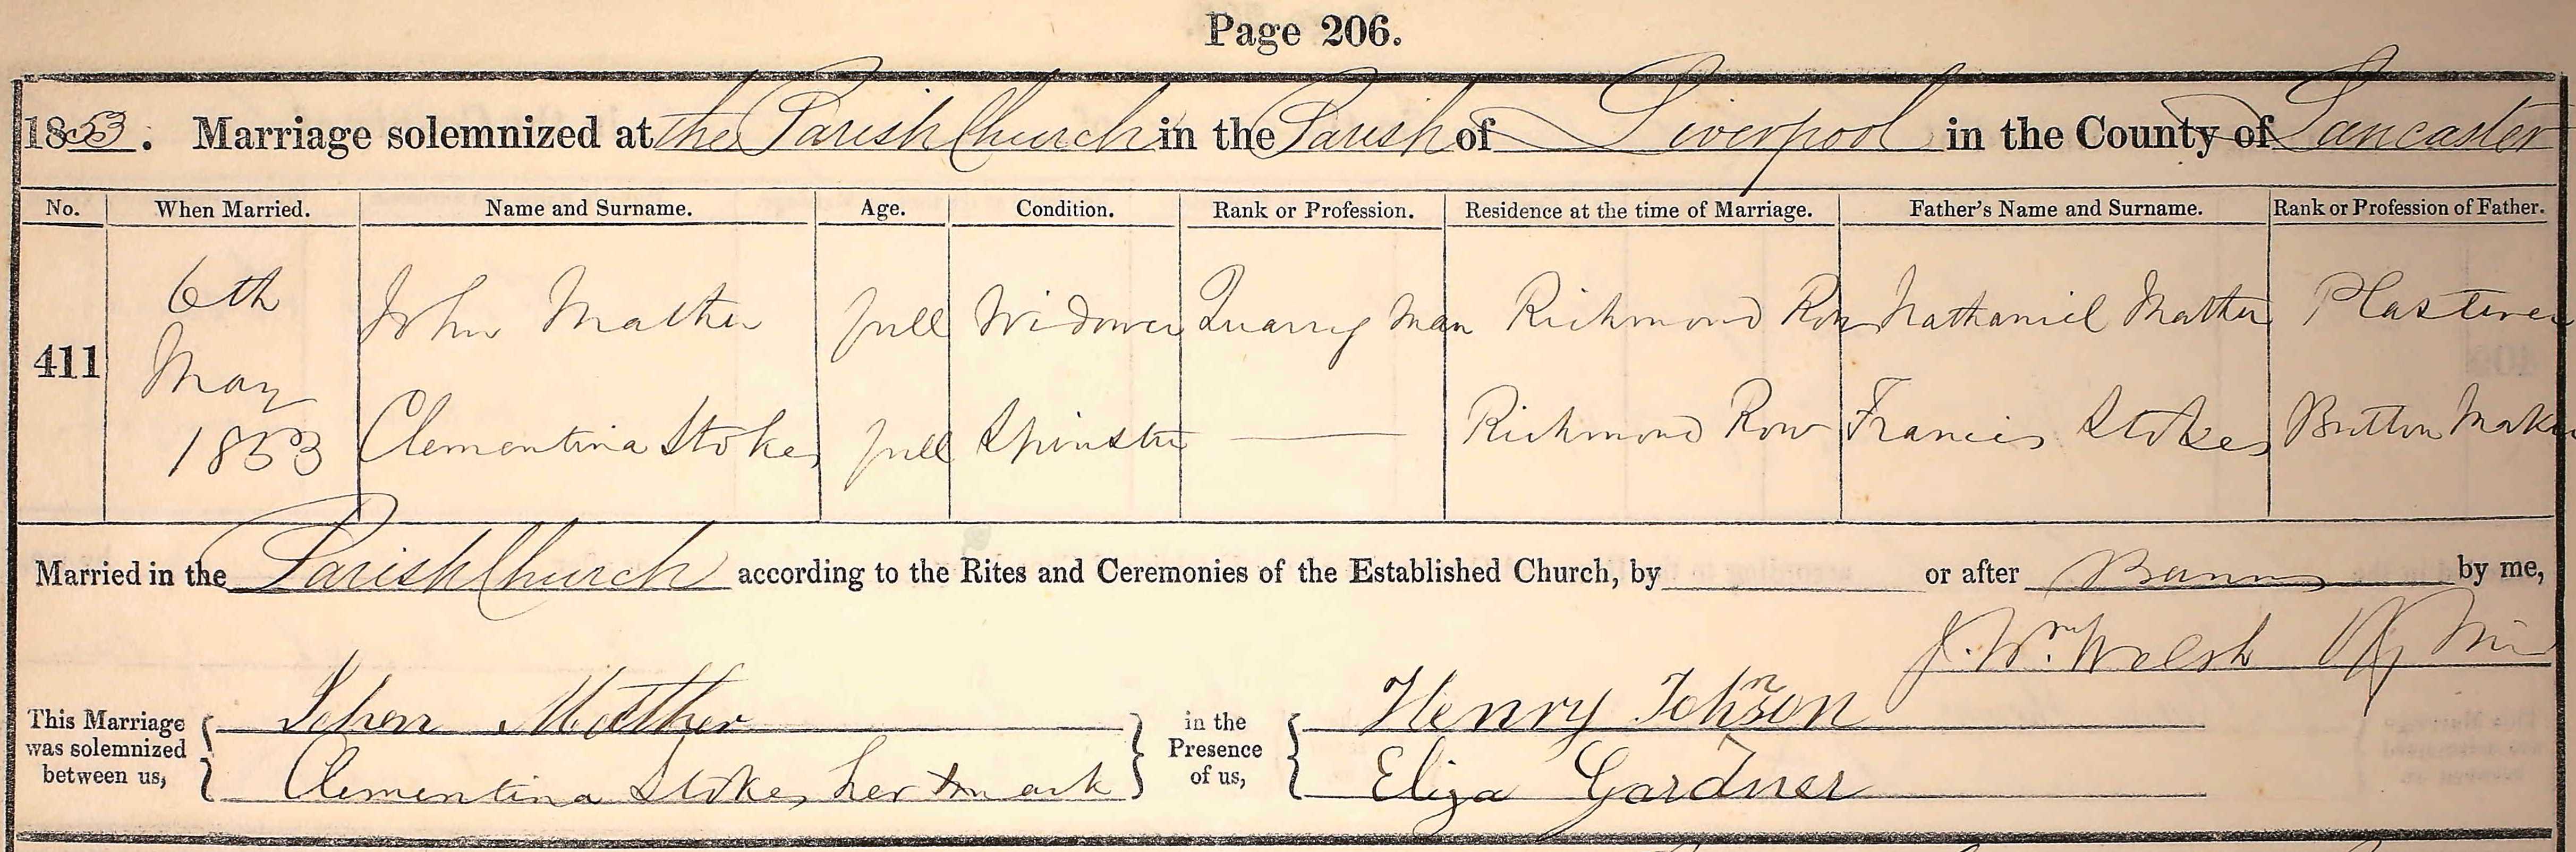 Page 206.
1853. Marriage solemnized at the Parish Church in the Parish of Liverpool in the County of Lancaster
No. When Married. Name and Surname. Age. Condition. Rank or Profession. Residence at the time of Marriage. Father's Name and Surname. Rank or Profession of Father.
6th
John Mather full Widower Quarry Man Richmond Row Nathaniel Mather Plasterer
411
May
1853 Clementina Stokes full Spinster — Richmond Row Francis Stokes Button Maker
Married in the Parish Church according to the Rites and Ceremonies of the Established Church, by or after Banns by me,
J. Wm. Welsh
This Marriage was solemnized between us, { John Mather } in the Presence of us, { Henry Johnson
Clementina Stokes her x mark Eliza Gardner